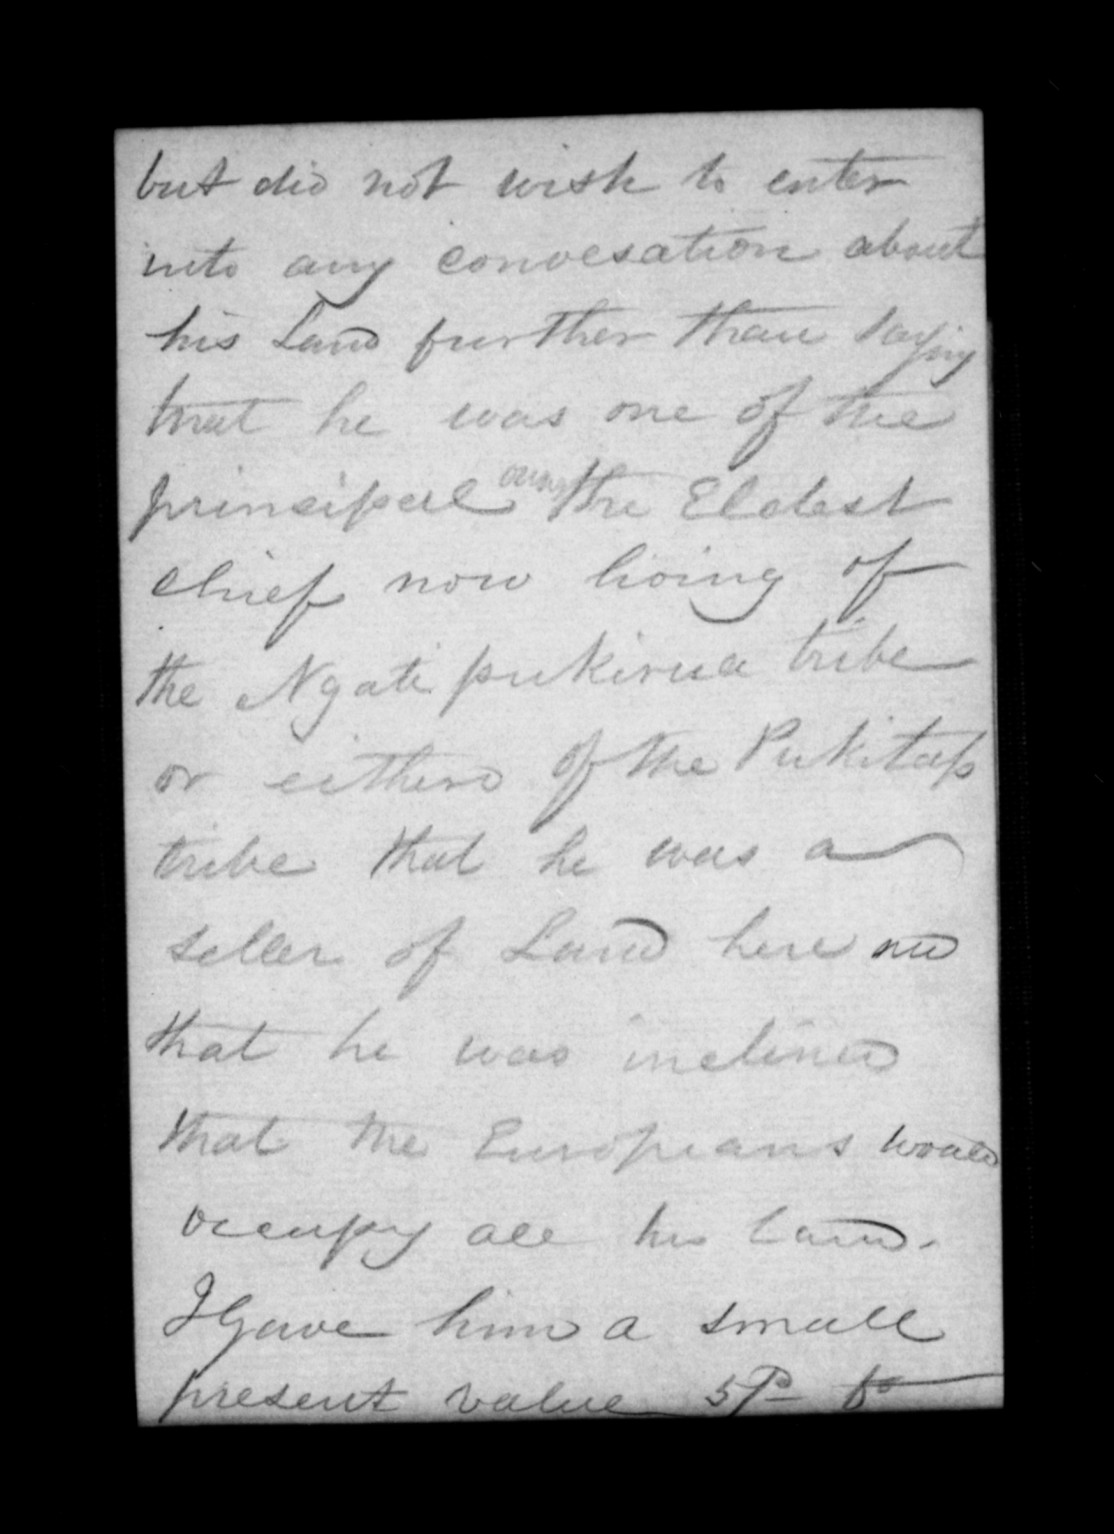 but did not wish to enter
into any convesation about
his Land further than saying
that he was one of the
principal owns the Eldest
chief now living of
the Ngati pukirua tribe
or eithero of the Pukitap
tribe that he was a
seller of Land here and
that he was inclined
that the Europeans would
occupy all his Land.
I Gave him a small
present value to